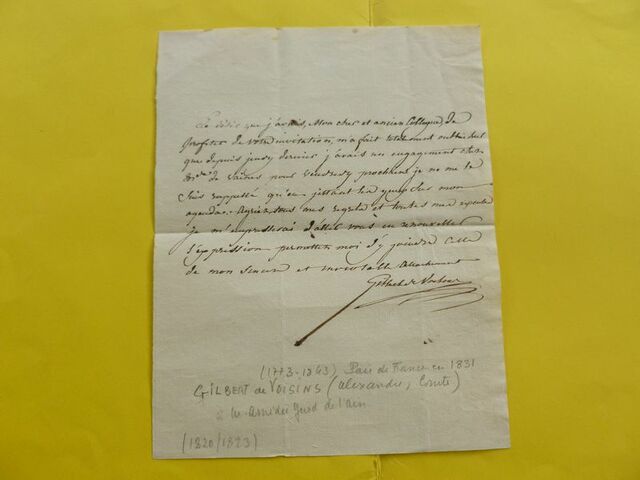 Le désir que j'avais, Mon cher et ancien Collegue, de
profiter de votre invitation, m'a fait totalement oublier
que depuis jeudy dernier j'avais un engagement chez
de nous Vendredy prochain je ne me le
suis rappellé qu'en jettant les yeux sur mon
agenda. Agréez tous mes regrets et toutes mes
je m'empresserai d'aller vous en renouveller
l'expression permettez moi d'y joindre celle
de mon sincere et inviolable attachement
Gilbert de Voisins
(1773-1843) Pair de France en 1831
GILBERT de VOISINS (Alexandre, Comte)
à de l'Ain
(1820/1823)